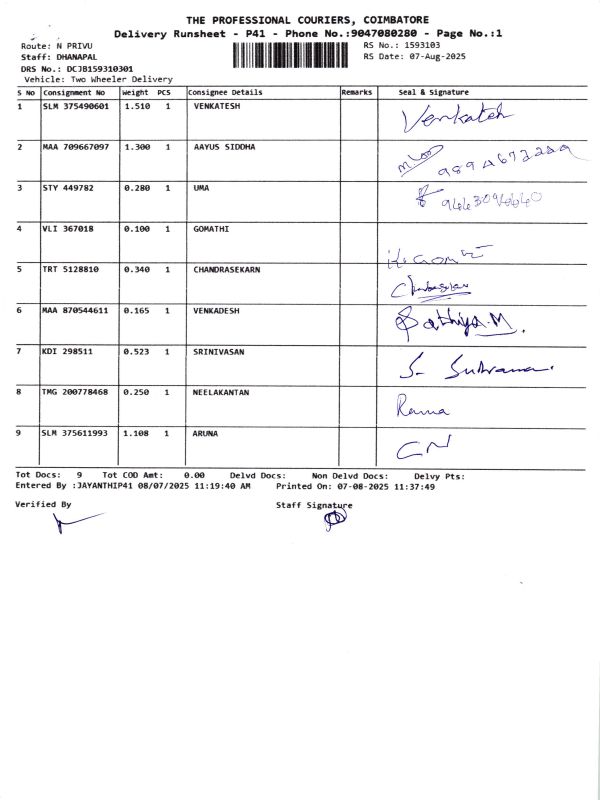 THE PROFESSIONAL COURIERS, COIMBATORE
Delivery Runsheet - P41 - Phone No.:9047080280 - Page No.:1
Route: N PRIVU RS No.: 1593103
Staff: DHANAPAL RS Date: 07-Aug-2025
DRS No.: DCJB159310301
Vehicle: Two Wheeler Delivery
S No Consignment No Weight PCS Consignee Details Remarks Seal & Signature
1 SLM 375490601 1.510 1 VENKATESH Venkatesh
2 MAA 709667097 1.300 1 AAYUS SIDDHA
3 STY 449782 0.280 1 UMA
4 VLI 367018 0.100 1 GOMATHI
5 TRT 5128810 0.340 1 CHANDRASEKARN
6 MAA 870544611 0.165 1 VENKADESH Sathiya.M.
7 KDI 298511 0.523 1 SRINIVASAN
8 TMG 200778468 0.250 1 NEELAKANTAN Rama
9 SLM 375611993 1.108 1 ARUNA CN
Tot Docs: 9 Tot COD Amt: 0.00 Delvd Docs: Non Delvd Docs: Delvy Pts:
Entered By :JAYANTHIP41 08/07/2025 11:19:40 AM Printed On: 07-08-2025 11:37:49
Verified By Staff Signature